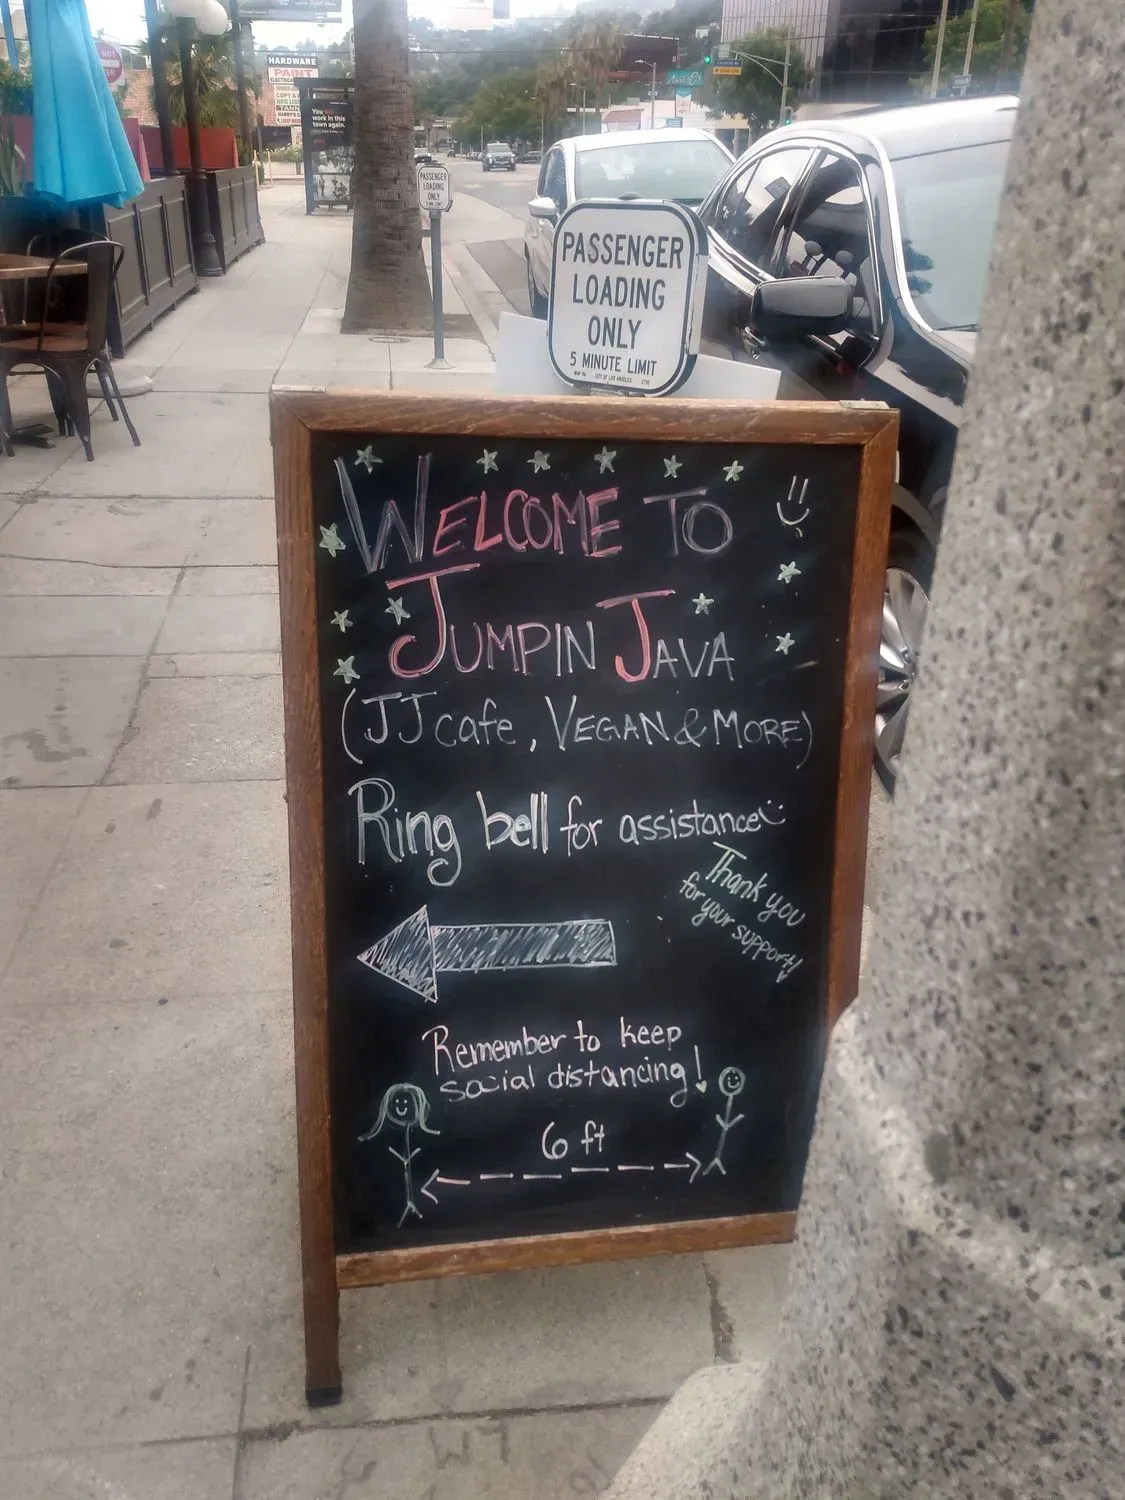 HARDWARE
PAINT
You
work in this
town again.
PASSENGER
LOADING
ONLY
PASSENGER
LOADING
ONLY
5 MINUTE LIMIT
CITY OF LOS ANGELES
WELCOME TO
JUMPIN JAVA
(JJ cafe, VEGAN & MORE)
Ring bell for assistance
Thank you
for your support!
Remember to keep
social distancing!
6 ft